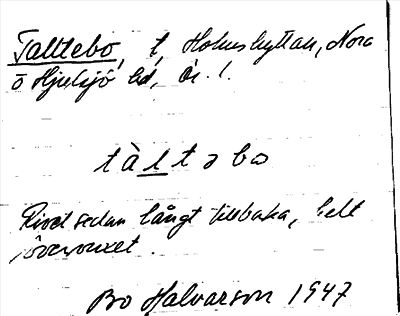 Talltebo, t, Hokushyttan, Nora
o Hjulsjö bd, Ör. l.
tàltəbo
Rivet sedan långt tillbaka, helt
övervuxet.
Bo Halvarson 1947